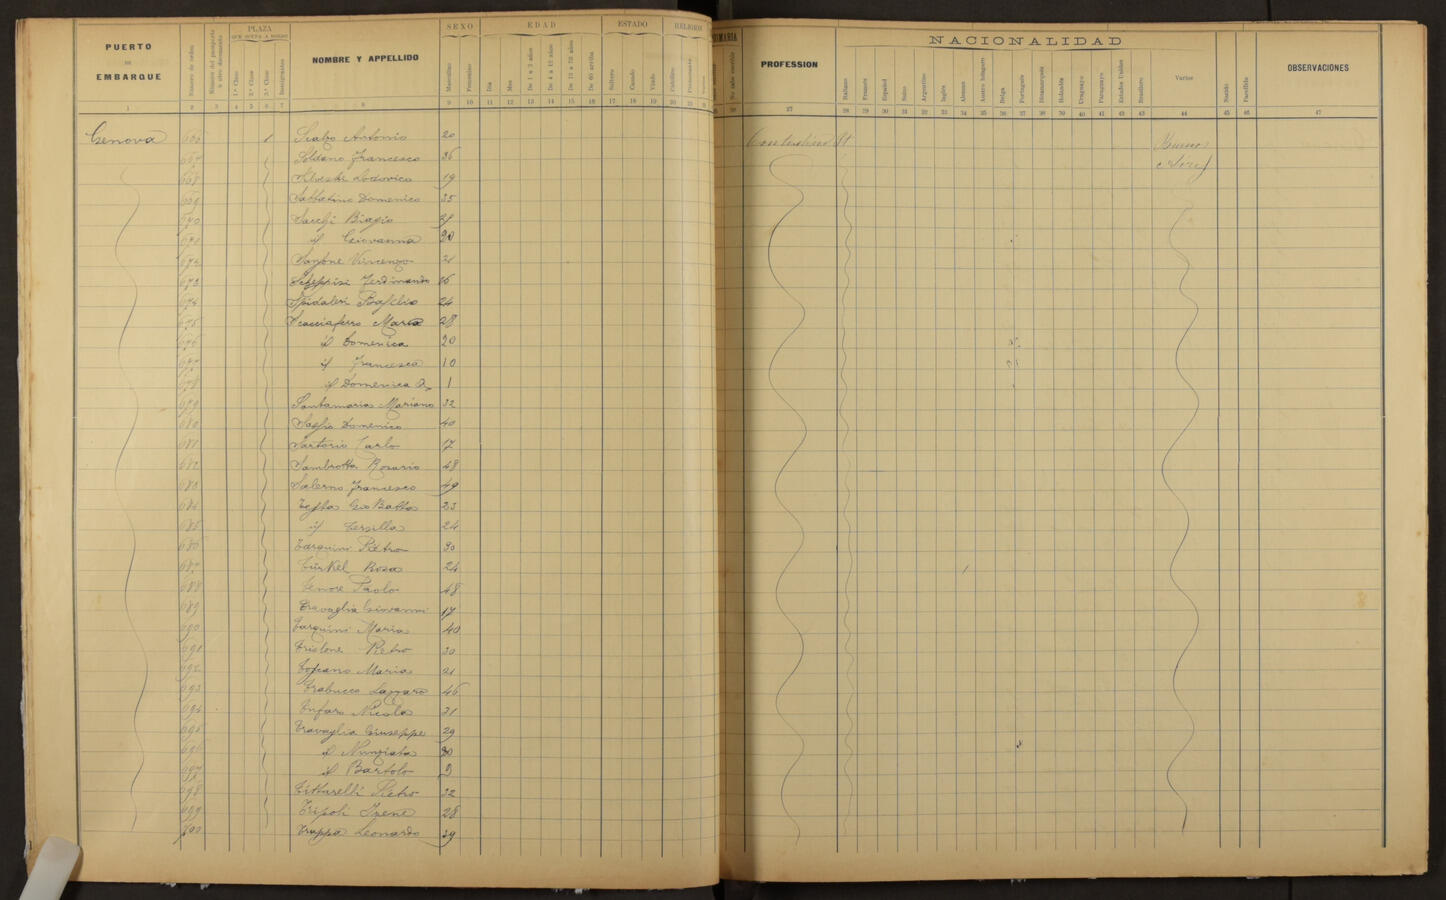 PUERTO DE EMBARQUE
Número de orden
PLAZA
QUE OCUPA A BORDO
1.ª Clase
2.ª Clase
3.ª Clase
NOMBRE Y APPELLIDO
SEXO
Masculino
Femenino
EDAD
Dia
Mes
De 1 a 3 años
De 4 a 12 años
De 13 a 59 años
De 60 arriba
ESTADO
Soltero
Casado
Viudo
RELIGION
PROFESSION
NACIONALIDAD
Italiano
Francés
Español
Suizo
Argentino
Inglés
Aleman
Austro húngaro
Belga
Portugués
Dinamarqués
Holandés
Uruguayo
Paraguayo
Estados Unidos
Brasilero
Varios
Nacido
Fallecido
OBSERVACIONES
1 2 3 4 5 6 7 8 9 10 11 12 13 14 15 16 17 18 19 20 21
27 28 29 30 31 32 33 34 35 36 37 38 39 40 41 42 43 44 45 46 47
Genova 666 Antonio 20 Buenos
667 Soldano Francesco 36 Aires
668 Silvestri Lodovico 19
669 Sabbatino Domenico 35
670 Sacchi Biagio
671 id Giovanna 20
672 Vincenzo 21
673 Ferdinando
674 Spidaleri 24
675 Scacciaferro Maria 28
676 id Domenica 20
677 id Francesca 10
678 id Domenica 1
679 Santamaria Mariano 32
680 Domenico 40
681 Sartorio Carlo 17
682 Sambrotta Rosario 48
683 Salerno Francesco 49
684 Testa Gio Batta 23
685 id Tersilla 24
686 Tarquini Pietro 30
687 Türkel Rosa 24
688 Tenore Paolo 48
689 Travaglia Giovanni 17
690 Tarquini Maria 40
691 Pietro 30
692 Toscano Maria 21
693 Trabucco Lazzaro 46
694 Tufaro Nicola 31
695 Travaglia Giuseppe 29
696 id Nunziata 20
697 id Bartolo
698 Tittarelli Pietro 32
699 Tripoli Irene 28
700 Truppa Leonardo 39